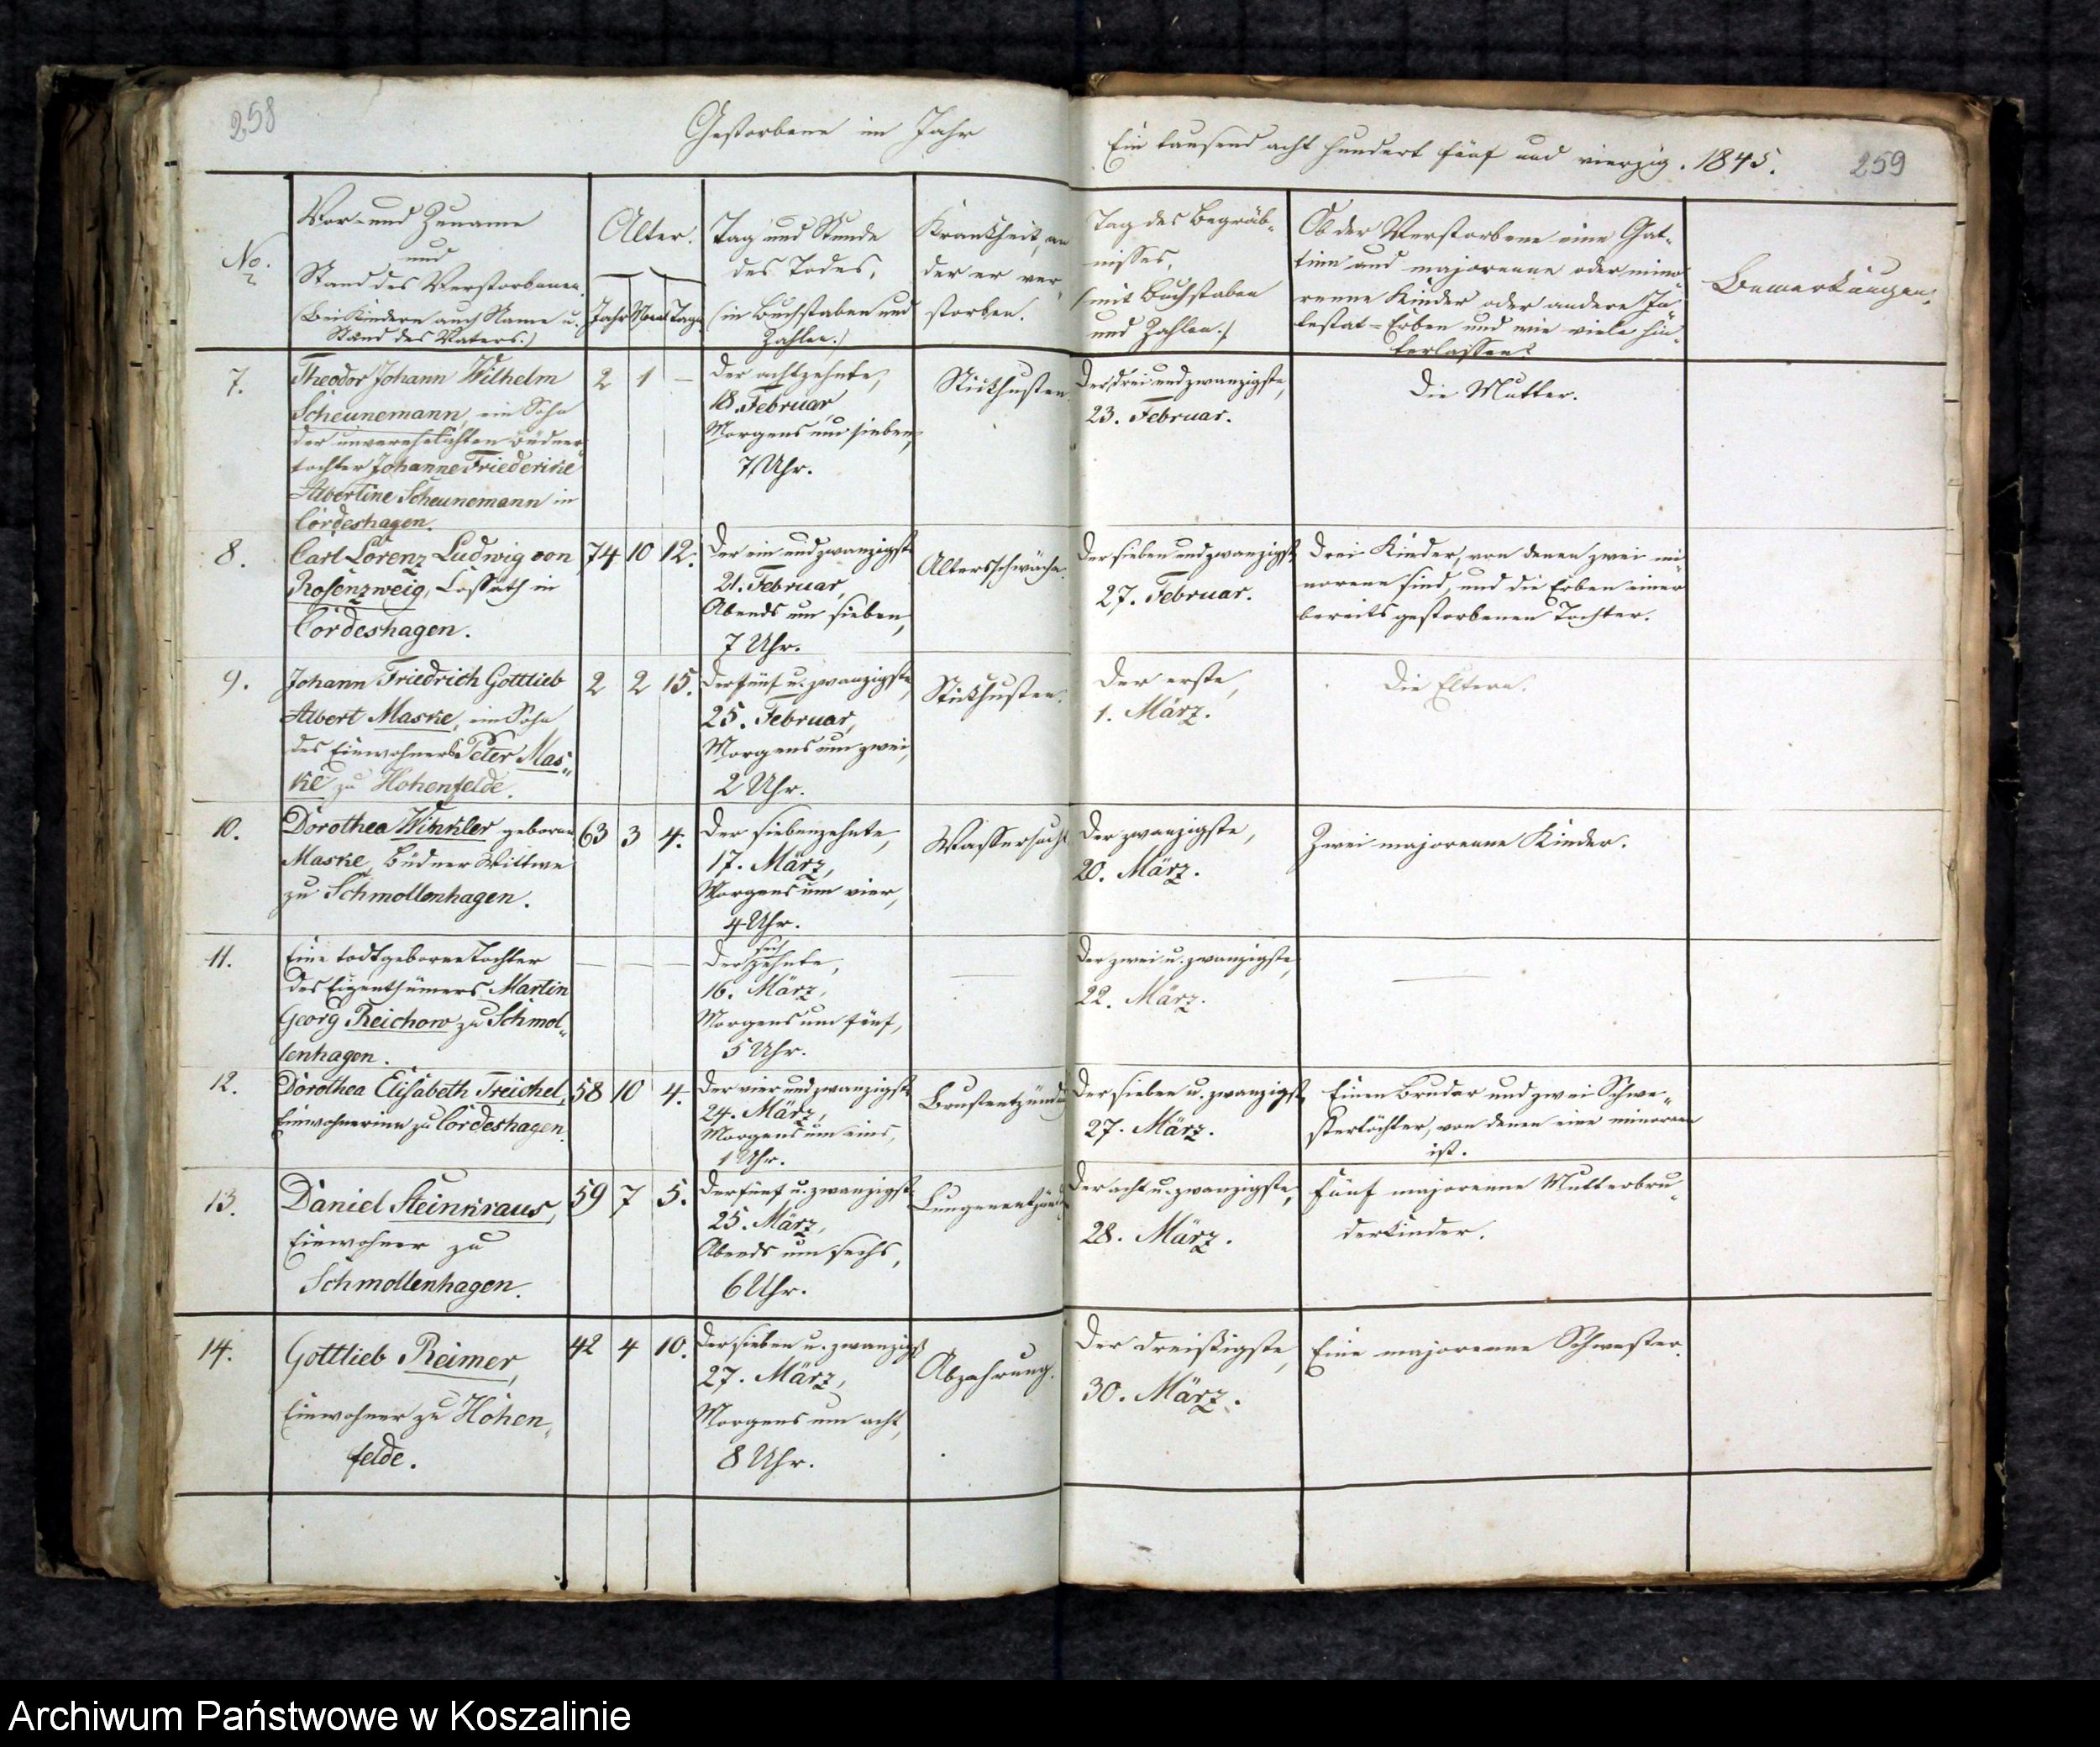 258
Gestorbene im Jahr
No.
Vor- und Zuname
und
Stand des Verstorbenen.
(Bei Kindern auch Name u.
Stand des Vaters.)
Alter.
Jahr Mont Tage
Tag und Stunde
des Todes,
(in Buchstaben und
Zahlen.)
Krankheit, an
der er ver-
storben.
7.
Theodor Johann Wilhelm
Scheunemann, ein Sohn
der unverehelichten Büdner-
tochter Johanne Friederike
Albertine Scheunemann in
Cördeshagen.
2 1 —
Der achtzehnte,
18. Februar,
Morgens um sieben,
7 Uhr.
Stickhusten.
8.
Carl Lorenz Ludwig von
Rosenzweig, Cossath in
Cordeshagen.
74 10 12.
Der ein und zwanzigste
21. Februar,
Abends um sieben,
7 Uhr.
Altersschwäche.
9.
Johann Friedrich Gottlieb
Albert Maske, ein Sohn
des Einwohners Peter Mas-
ke zu Hohenfelde.
2 2 15.
Der fünf u. zwanzigste,
25. Februar,
Morgens um zwei,
2 Uhr.
Stickhusten.
10.
Dorothea Winkler geborne
Maske, Büdner Wittwe
zu Schmollenhagen.
63 3 4.
Der siebenzehnte,
17. März,
Morgens um vier,
4 Uhr.
Wassersucht
11.
Eine todtgeborne Tochter
des Eigenthümers Martin
Georg Reichow zu Schmol-
lenhagen.
— — —
Der sechzehnte,
16. März,
Morgens um fünf,
5 Uhr.
—
12.
Dorothea Elisabeth Treichel,
Einwohnerinn zu Cordeshagen.
58 10 4.
Der vier und zwanzigste
24. März,
Morgens um eins,
1 Uhr.
13.
Daniel Steinkraus,
Einwohner zu
Schmollenhagen.
59 7 5.
Der fünf u. zwanzigste
25. März,
Abends um sechs,
6 Uhr.
14.
Gottlieb Reimer,
Einwohner zu Hohen-
felde.
42 4 10.
Der sieben u. zwanzigst
27. März,
Morgens um acht,
8 Uhr.
Abzehrung.
Ein tausend acht hundert fünf und vierzig. 1845.
259
Tag des Begräb-
nisses,
(mit Buchstaben
und Zahlen.)
Ob der Verstorbene eine Gat-
tinn und majorenne oder mino-
renne Kinder oder andere In-
testat-Erben und wie viele hin-
terlassen?
Bemerkungen.
Der drei und zwanzigste,
23. Februar.
Die Mutter.
Der sieben und zwanzigste
27. Februar.
Drei Kinder, von denen zwei mi-
norenn sind, und die Erben einer
bereits gestorbenen Tochter.
Der erste,
1. März.
Die Eltern.
Der zwanzigste,
20. März.
Zwei majorenne Kinder.
Der zwei u. zwanzigste,
22. März.
—
Der sieben u. zwanzigste
27. März.
Einen Bruder und zwei Schwe-
stertöchter, von denen eine minorenn
ist.
Der acht u. zwanzigste,
28. März.
Fünf majorenne Mutterbru-
derkinder.
Der dreißigste,
30. März.
Eine majorenne Schwester.
Archiwum Państwowe w Koszalinie